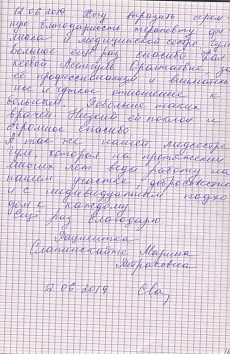 12.06.2019 Хочу выразить огром
ную благодарность терапевту
и медицинской сестре Гуля
Большое ещё раз спасибо
за
её профессионализм и внимательн
ное и чуткое отношение к
больным. Побольше таких
врачей Низкий ей поклон и
огромное спасибо
А так же нашей медсестре
Гуля которая на протяжении
многих лет ведя работу на
нашем участке, добросовестно
и с индивидуальным подхо
дом к каждому
Ещё раз благодарю
Пациентка
Марина
Петросовна
12.06.2019